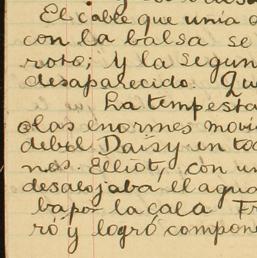 El cable que unía a
con la balsa se
roto; y la segun
desaparecido. Qu
La tempesta
olas enormes movi
débil Daisy en to
nos. Elliot, con u
desalojaba el agua
ba por la cala Fr
ró y logró compone